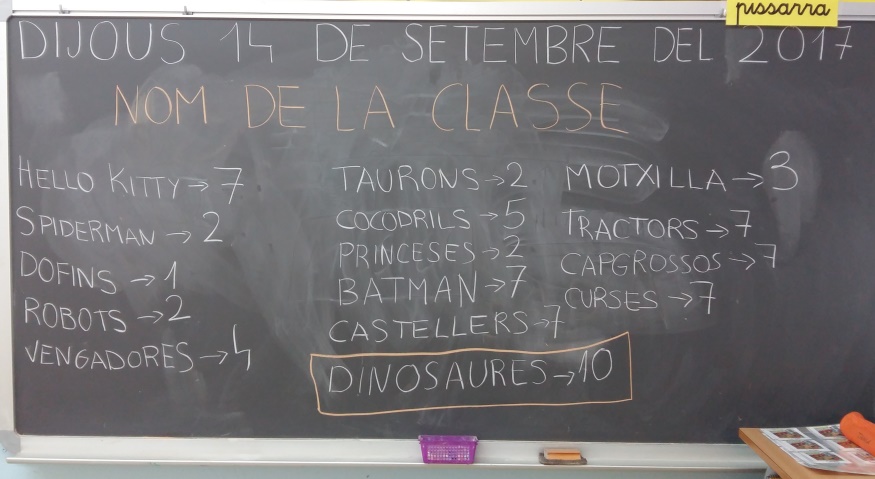 pissarra
DIJOUS 14 DE SETEMBRE DEL 2017
NOM DE LA CLASSE
HELLO KITTY → 7
SPIDERMAN → 2
DOFINS → 1
ROBOTS → 2
VENGADORES → 4
TAURONS → 2
COCODRILS → 5
PRINCESES → 2
BATMAN → 7
CASTELLERS → 7
DINOSAURES → 10
MOTXILLA → 3
TRACTORS → 7
CAPGROSSOS → 7
CURSES → 7